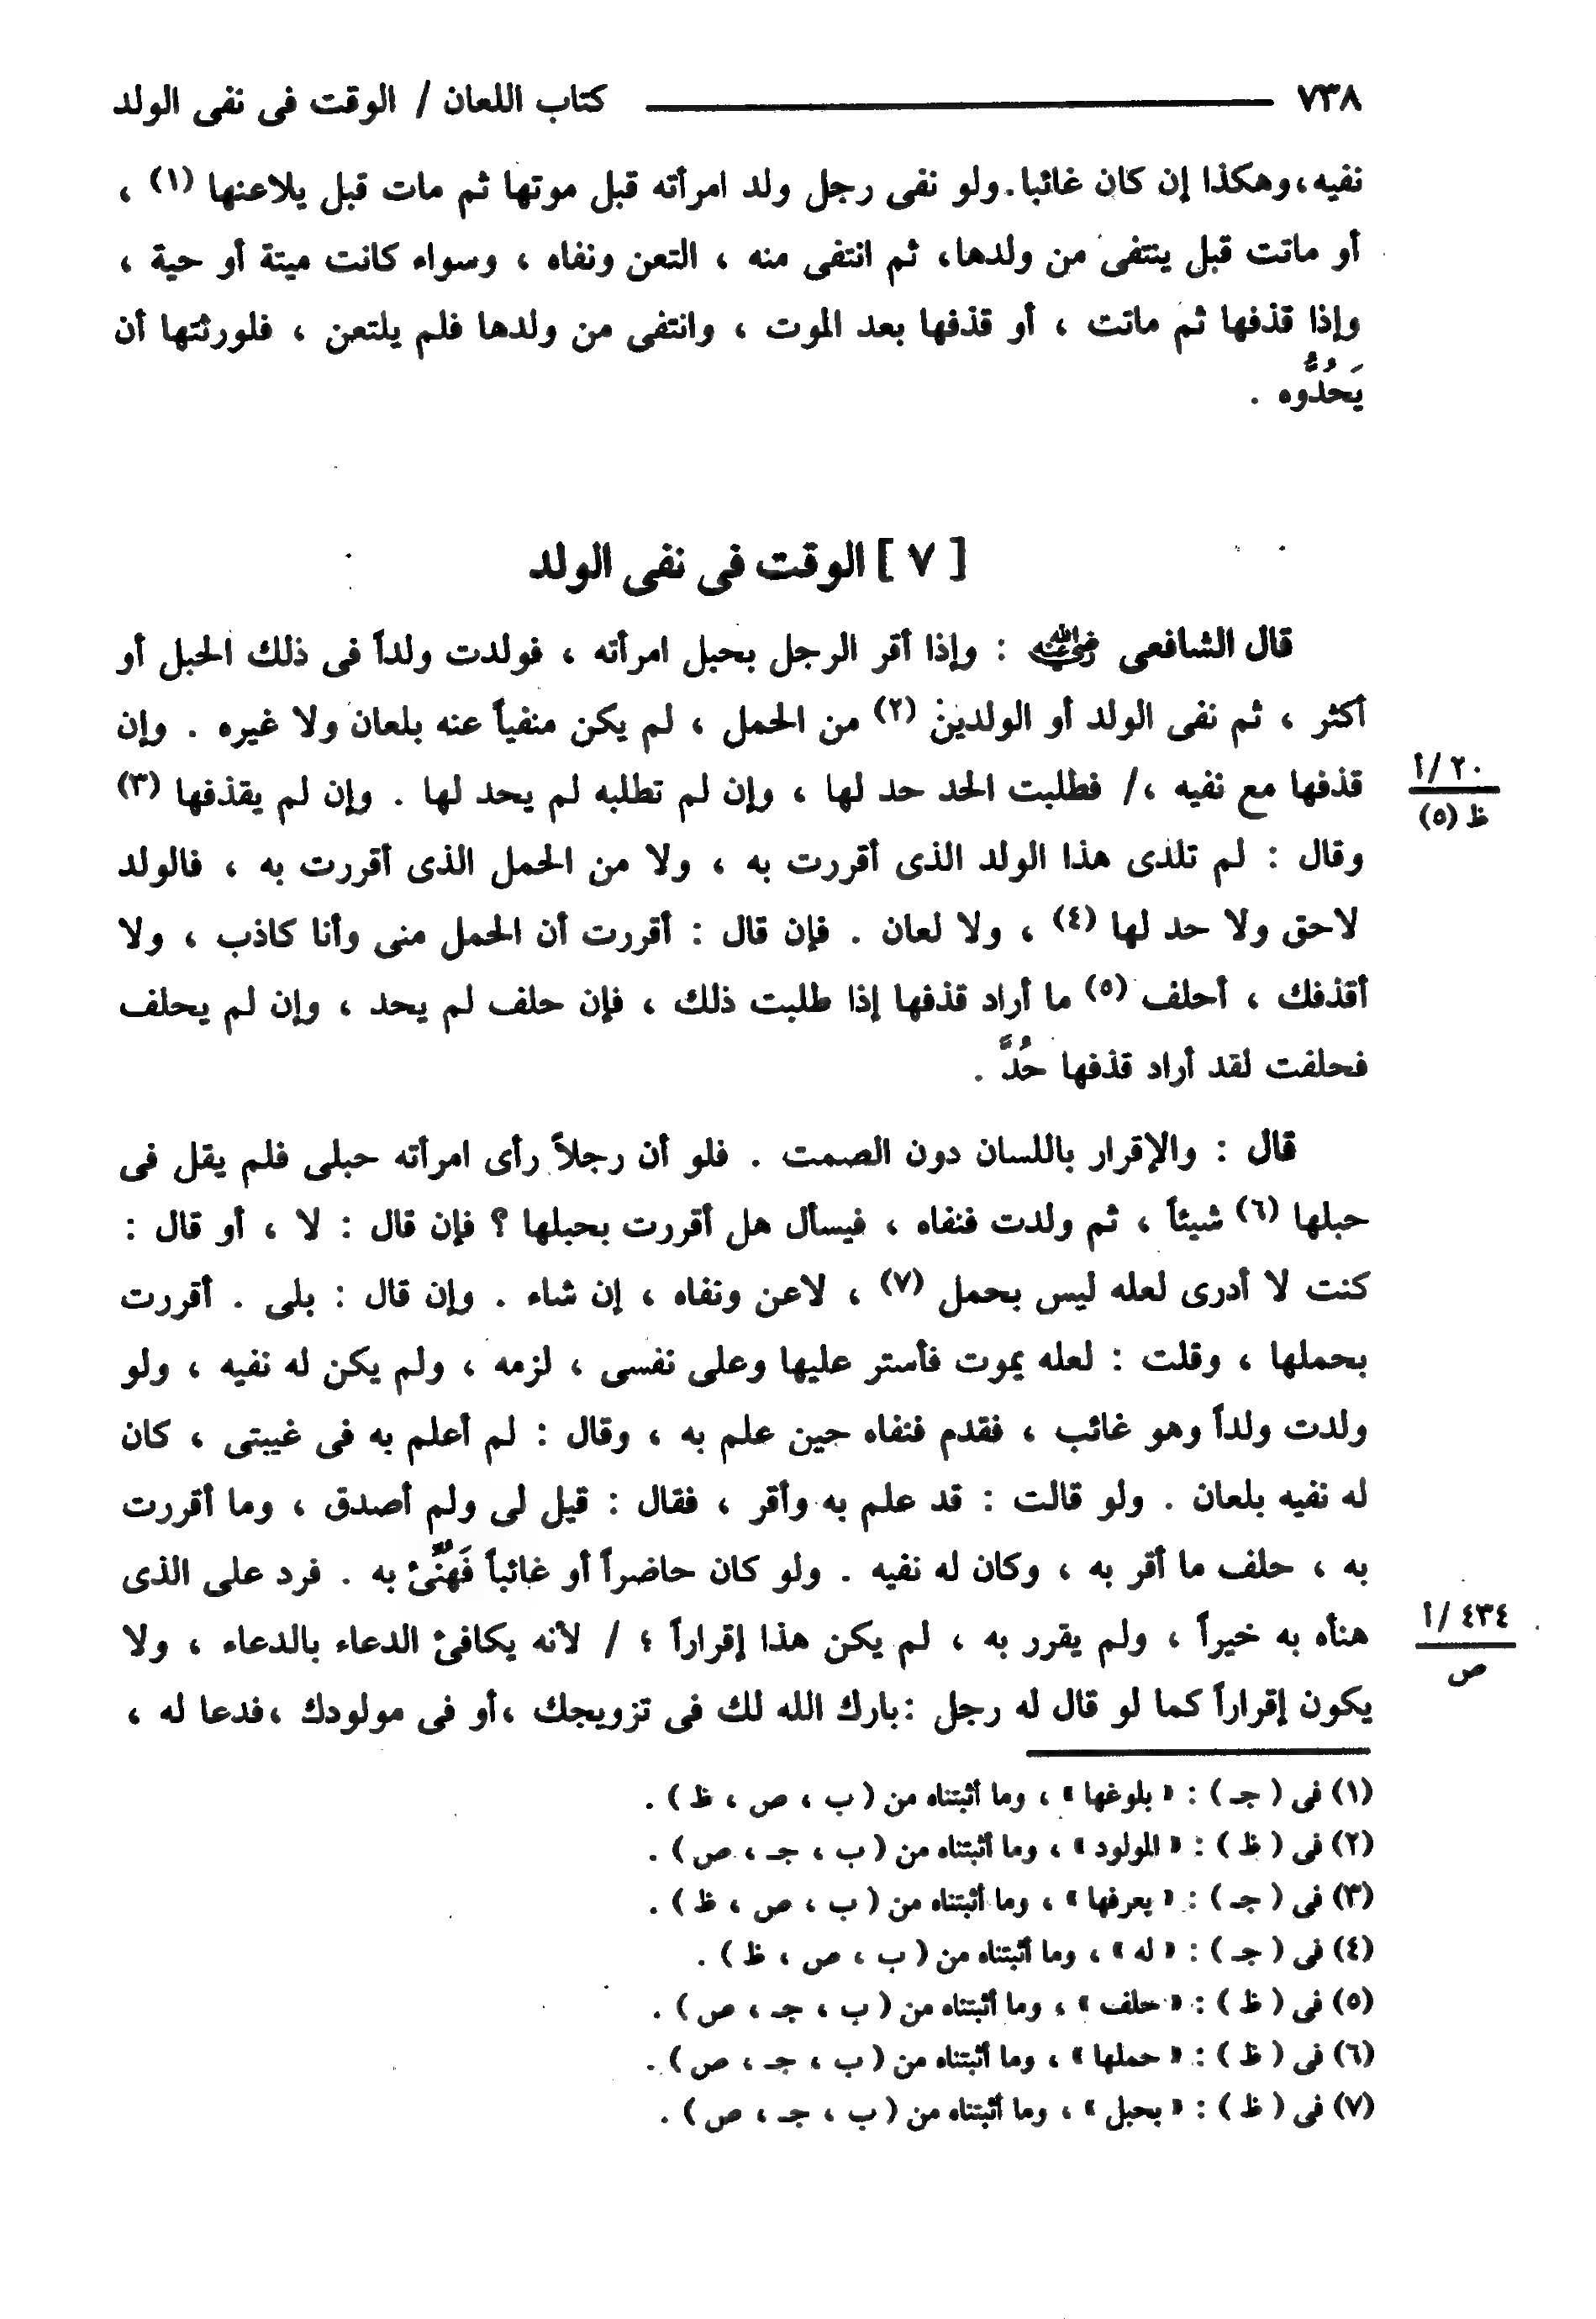 ٧٣٨ كتاب اللعان / الوقت فى نفى الولد
نفيه ، وهكذا إن كان غائبا . ولو نفى رجل ولد امرأته قبل موتها ثم مات قبل يلاعنها (١) ،
أو ماتت قبل ينتفى من ولدها ، ثم انتفى منه ، التعن ونفاه ، وسواء كانت ميتة أو حية ،
وإذا قذفها ثم ماتت ، أو قذفها بعد الموت ، وانتفى من ولدها فلم يلتعن ، فلورثتها أن
يَحُدُّوه .
[ ٧ ] الوقت فى نفى الولد
قال الشافعى رضي الله عنه : وإذا أقر الرجل بحبل امرأته ، فولدت ولداً فى ذلك الحبل أو
أكثر ، ثم نفى الولد أو الولدين (٢) من الحمل ، لم يكن منفياً عنه بلعان ولا غيره . وإن
قذفها مع نفيه ،/ فطلبت الحد حد لها ، وإن لم تطلبه لم يحد لها . وإن لم يقذفها (٣)
٢٠ /أ
ظ (٥)
وقال : لم تلدى هذا الولد الذى أقررت به ، ولا من الحمل الذى أقررت به ، فالولد
لاحق ولا حد لها (٤) ، ولا لعان . فإن قال : أقررت أن الحمل منى وأنا كاذب ، ولا
أقذفك ، أحلف (٥) ما أراد قذفها إذا طلبت ذلك ، فإن حلف لم يحد ، وإن لم يحلف
فحلفت لقد أراد قذفها حُدَّ .
قال : والإقرار باللسان دون الصمت . فلو أن رجلاً رأى امرأته حبلى فلم يقل فى
حبلها (٦) شيئاً ، ثم ولدت فنفاه ، فيسأل هل أقررت بحبلها ؟ فإن قال : لا ، أو قال :
كنت لا أدرى لعله ليس بحمل (٧) ، لاعن ونفاه ، إن شاء . وإن قال : بلى . أقررت
بحملها ، وقلت : لعله يموت فأستر عليها وعلى نفسى ، لزمه ، ولم يكن له نفيه ، ولو
ولدت ولداً وهو غائب ، فقدم فنفاه حين علم به ، وقال : لم أعلم به فى غيبتى ، كان
له نفيه بلعان . ولو قالت : قد علم به وأقر ، فقال : قيل لى ولم أصدق ، وما أقررت
به ، حلف ما أقر به ، وكان له نفيه . ولو كان حاضراً أو غائباً فَهُنِّئ به . فرد على الذى
هنأه به خيراً ، ولم يقرر به ، لم يكن هذا إقراراً ؛ / لأنه يكافئ الدعاء بالدعاء ، ولا
٤٣٤ /أ
ص
يكون إقراراً كما لو قال له رجل : بارك الله لك فى تزويجك ، أو فى مولودك ، فدعا له ،
(١) فى ( جـ ) : « بلوغها » ، وما أثبتناه من ( ب ، ص ، ظ ) .
(٢) فى ( ظ ) : « المولود » ، وما أثبتناه من ( ب ، جـ ، ص ) .
(٣) فى ( جـ ) : « يعرفها » ، وما أثبتناه من ( ب ، ص ، ظ ) .
(٤) فى ( جـ ) : « له » ، وما أثبتناه من ( ب ، ص ، ظ ) .
(٥) فى ( ظ ) : « حلف » ، وما أثبتناه من ( ب ، جـ ، ص ) .
(٦) فى ( ظ ) : « حملها » ، وما أثبتناه من ( ب ، جـ ، ص ) .
(٧) فى ( ظ ) : « بحبل » ، وما أثبتناه من ( ب ، جـ ، ص ) .